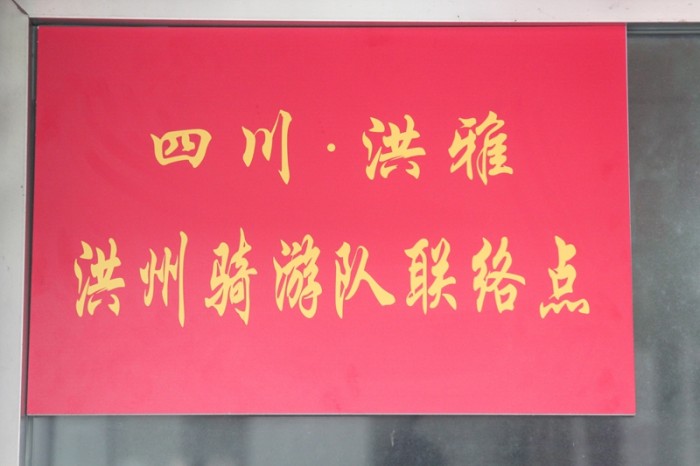 四川·洪雅
洪州骑游队联络点